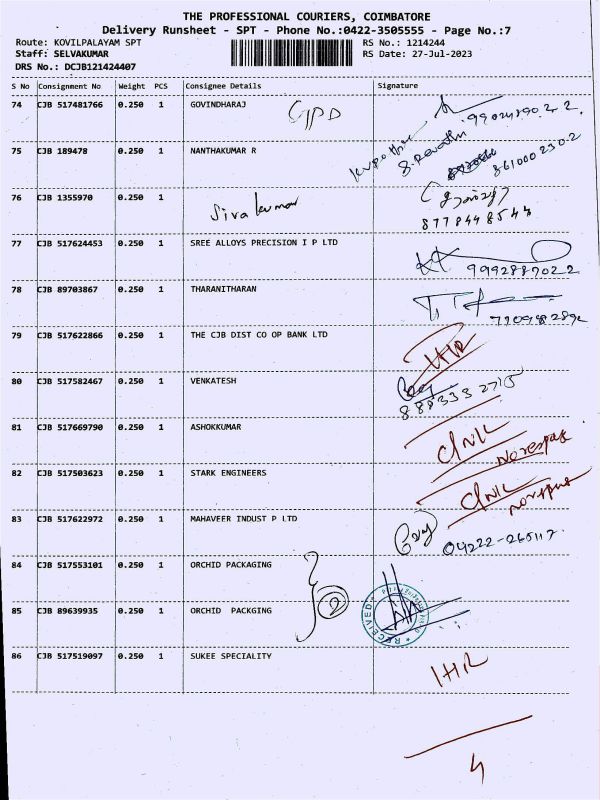 THE PROFESSIONAL COURIERS, COIMBATORE
Delivery Runsheet - SPT - Phone No.:0422-3505555 - Page No.:7
Route: KOVILPALAYAM SPT RS No.: 1214244
Staff: SELVAKUMAR RS Date: 27-Jul-2023
DRS No.: DCJB121424407
S No Consignment No Weight PCS Consignee Details Signature
74 CJB 517481766 0.250 1 GOVINDHARAJ
75 CJB 189478 0.250 1 NANTHAKUMAR R
76 CJB 1355970 0.250 1 Sivakumar
8778448544
77 CJB 517624453 0.250 1 SREE ALLOYS PRECISION I P LTD
9992887022
78 CJB 89703867 0.250 1 THARANITHARAN
79 CJB 517622866 0.250 1 THE CJB DIST CO OP BANK LTD
80 CJB 517582467 0.250 1 VENKATESH
81 CJB 517669790 0.250 1 ASHOKKUMAR
82 CJB 517503623 0.250 1 STARK ENGINEERS
83 CJB 517622972 0.250 1 MAHAVEER INDUST P LTD
84 CJB 517553101 0.250 1 ORCHID PACKAGING
2
85 CJB 89639935 0.250 1 ORCHID PACKGING RECEIVED
86 CJB 517519097 0.250 1 SUKEE SPECIALITY